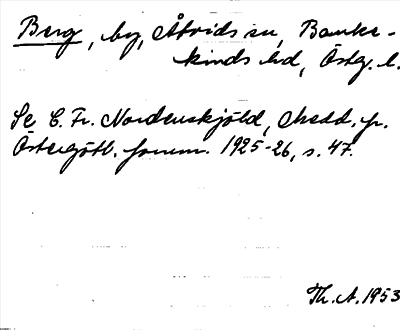 Berg, by, Åtvids sn, Banke-
kinds hd, Östg. l.
Se C. Fr. Nordenskjöld, Medd. fr.
Östergötl. fornm. 1925-26, s. 47.
Th. A. 1953